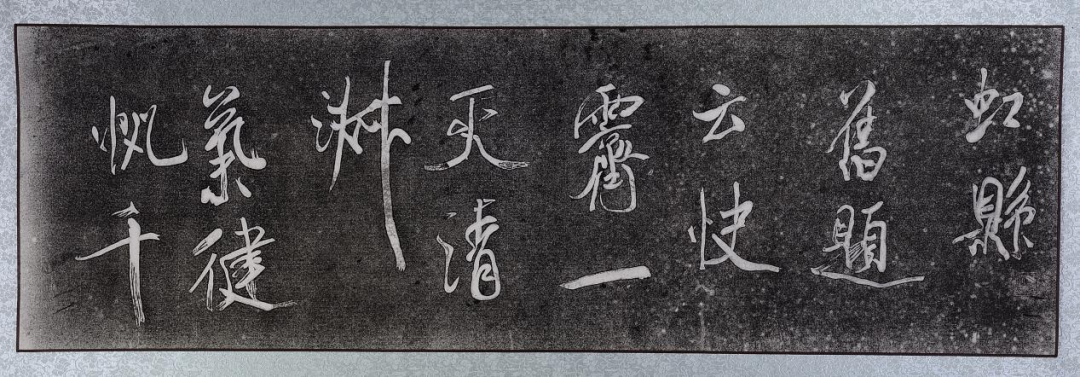 虹縣
舊題
云快
霽一
天清
淑
氣健
帆千